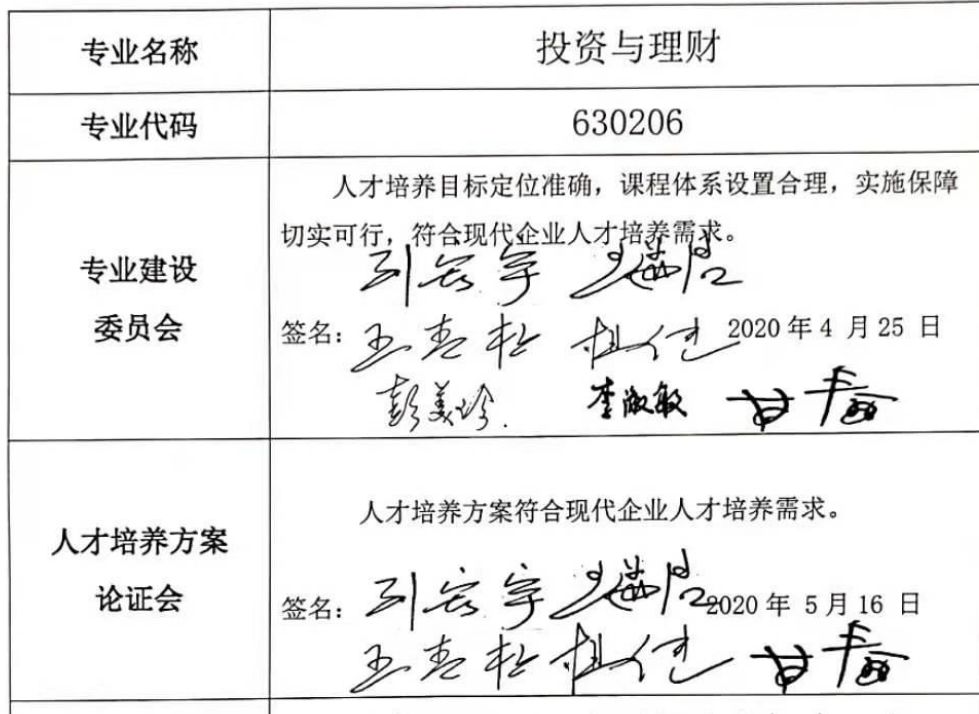 专业名称
投资与理财
专业代码
630206
专业建设
委员会
人才培养目标定位准确，课程体系设置合理，实施保障
切实可行，符合现代企业人才培养需求。
签名：
2020 年 4 月 25 日
彭美珍
李淑敏
人才培养方案
论证会
人才培养方案符合现代企业人才培养需求。
签名：
2020 年 5 月 16 日